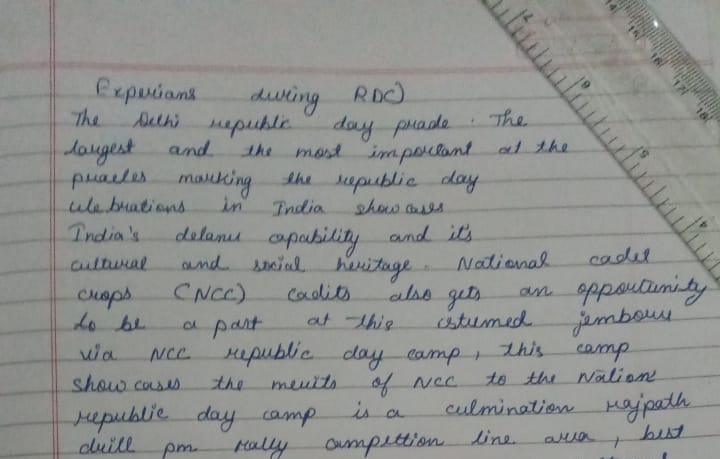 Experians during RDC)
The Delhi republic day prade. The
largest and the most important at the
praeles marking the republic day
celebrations in India show cases
India's delanu capability and it's
cultural and social heritage. National cadet
crops (NCC) cadits also gets an opportunity
to be a part at this estumed jembour
via NCC republic day camp, this camp
show cases the merits of NCC to the Nation
republic day camp is a culmination rajpath
drill pm rally campettion line area, best